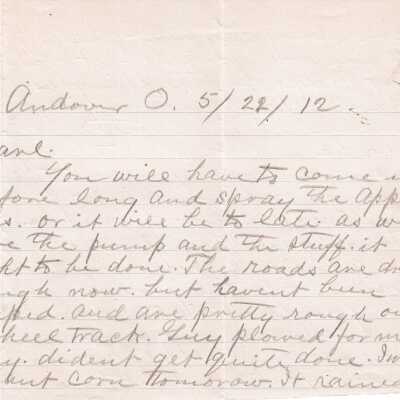 Andover O. 5/22/12.
arl.
You will have to come u
fore long and spray the App
s. or it will be to late as w
e the pump and the stuff. it
ht to be done. The roads are dr
ugh now. but havent been
ped. and are pretty rough ou
heel track. Guy plowed for m
y. dident get quite done. I w
ant corn tomorow. It rained